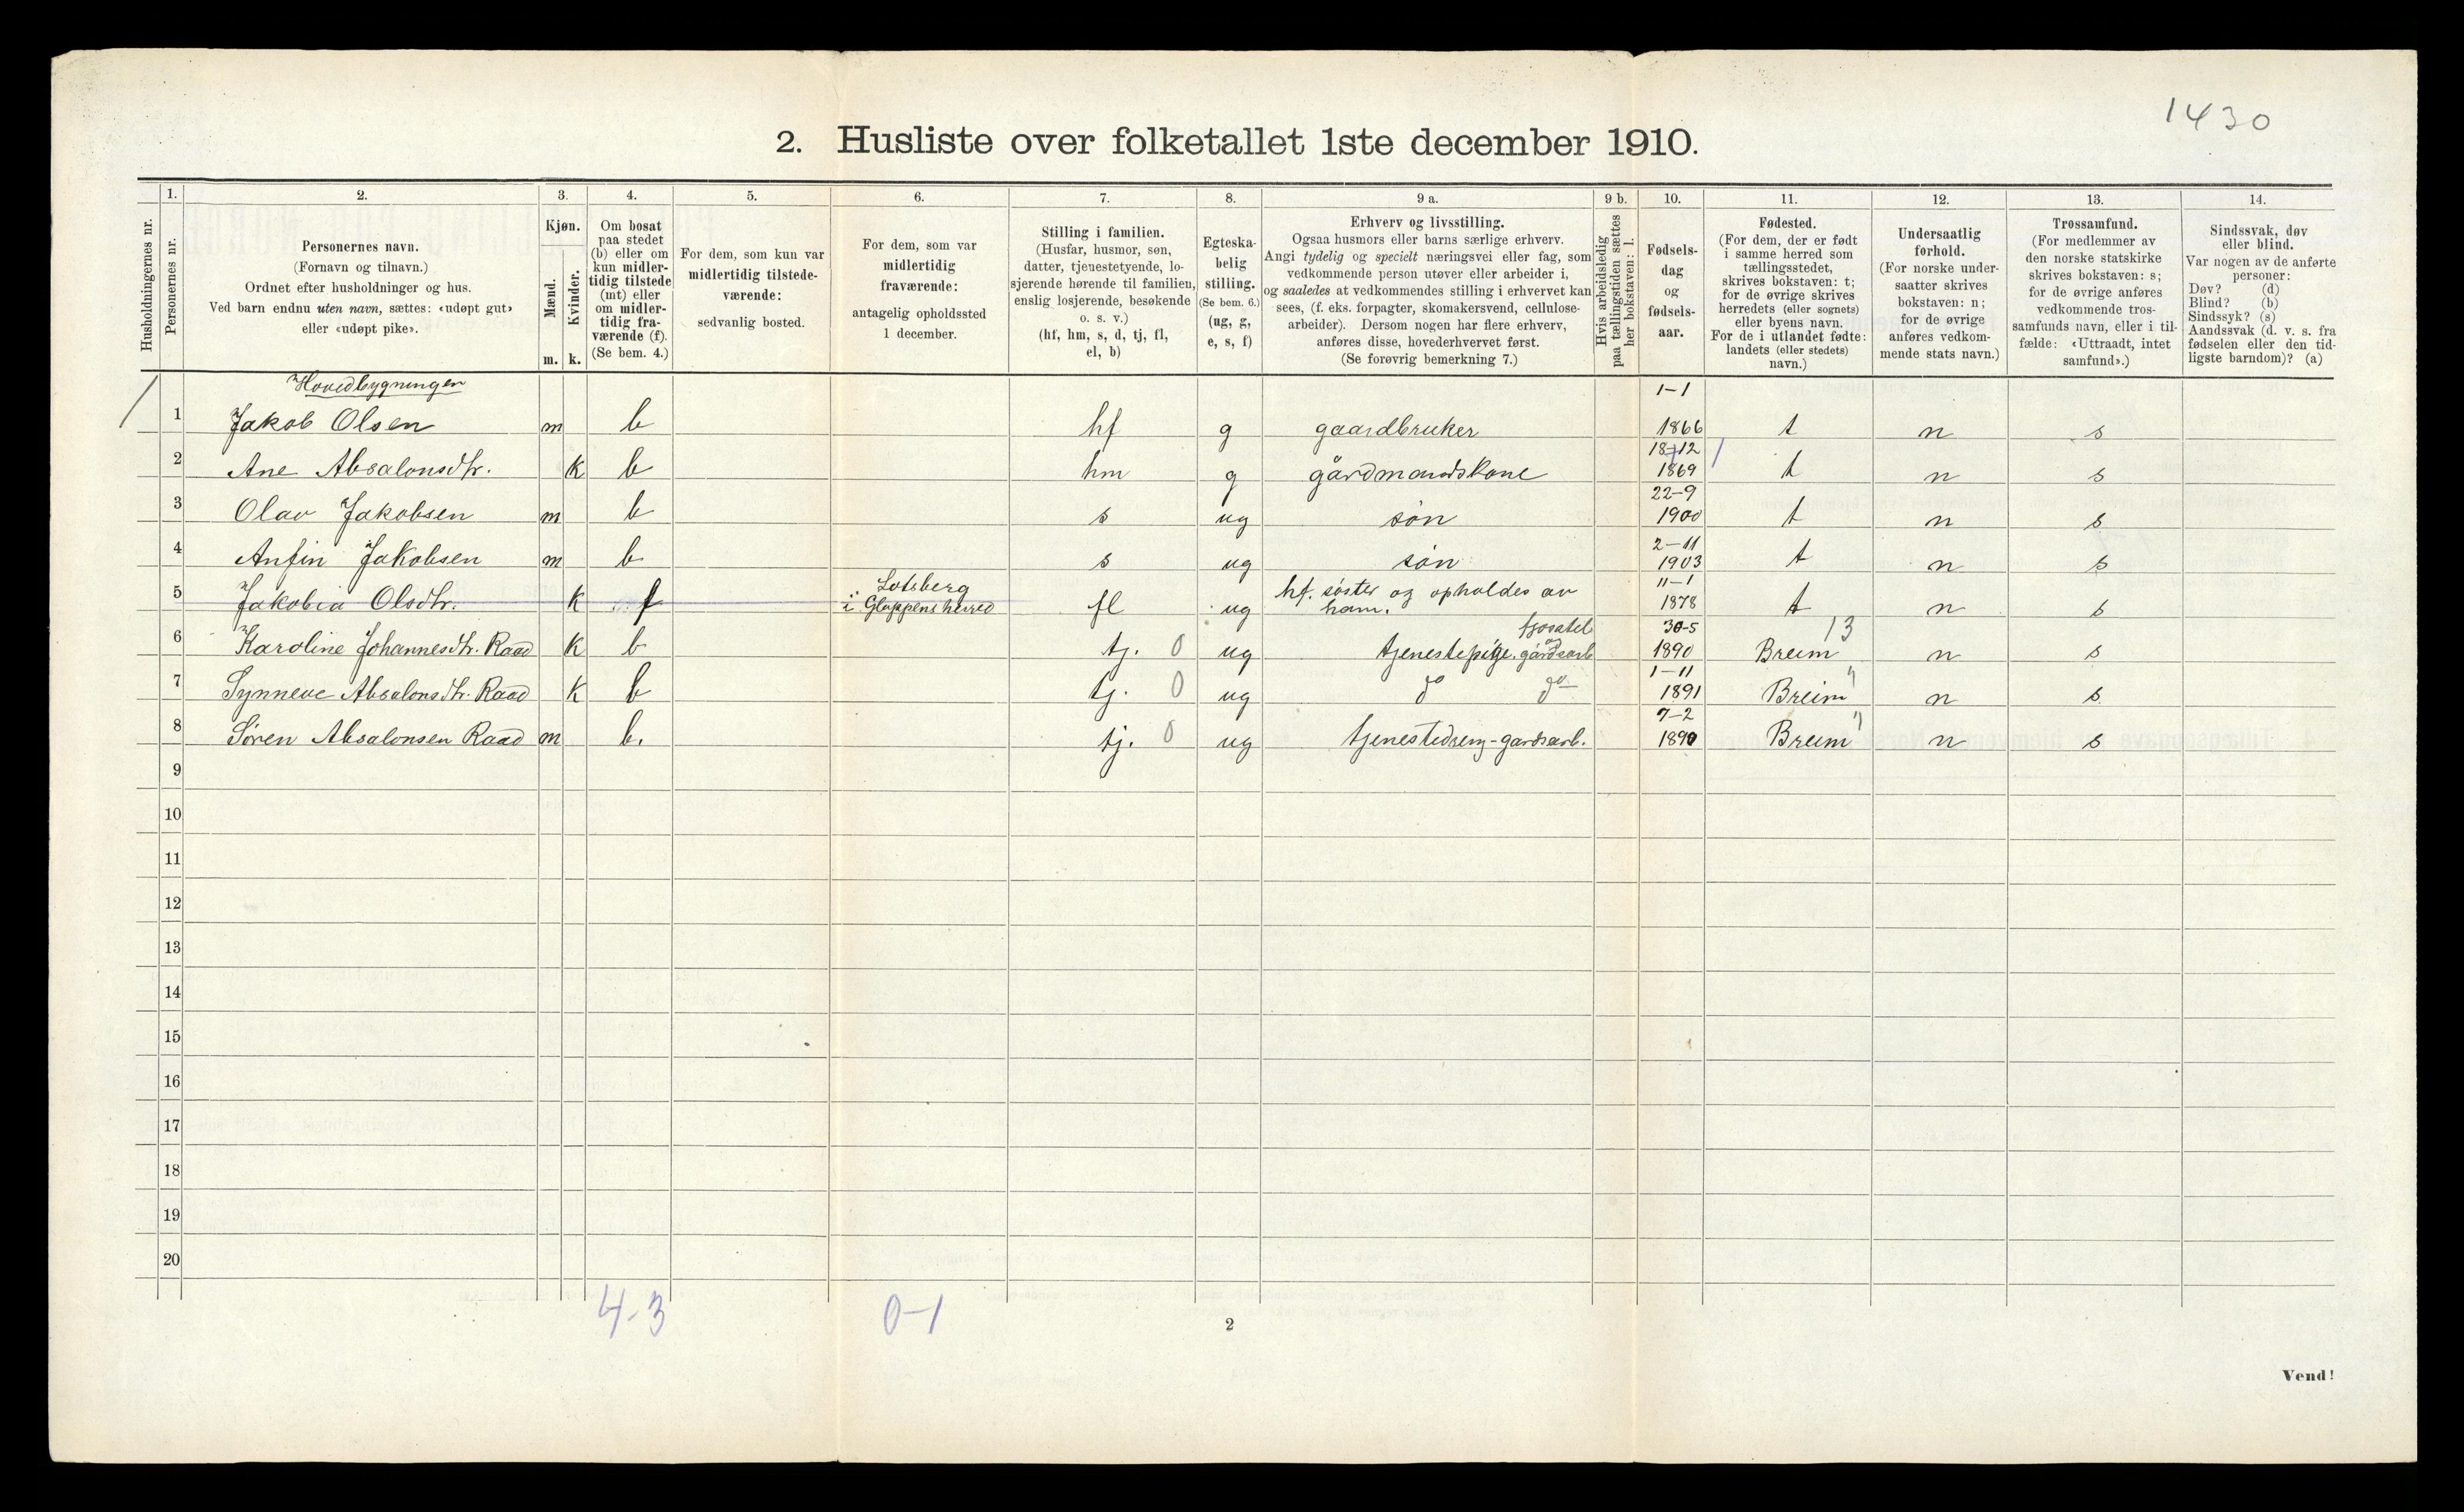 1430
2. Husliste over folketallet 1ste december 1910.
Husholdningernes nr.
1. Personernes nr.
2. Personernes navn.
(Fornavn og tilnavn.)
Ordnet efter husholdninger og hus.
Ved barn endnu uten navn, sættes: «udøpt gut»
eller «udøpt pike».
3. Kjøn.
Mænd. m.
Kvinder. k.
4. Om bosat
paa stedet
(b) eller om
kun midler-
tidig tilstede
(mt) eller
om midler-
tidig fra-
værende (f).
(Se bem. 4.)
5. For dem, som kun var
midlertidig tilstede-
værende:
sedvanlig bosted.
6. For dem, som var
midlertidig
fraværende:
antagelig opholdssted
1 december.
7. Stilling i familien.
(Husfar, husmor, søn,
datter, tjenestetyende, lo-
sjerende hørende til familien,
enslig losjerende, besøkende
o. s. v.)
(hf, hm, s, d, tj, fl,
el, b)
8. Egteska-
belig
stilling.
(Se bem. 6.)
(ug, g,
e, s, f)
9 a. Erhverv og livsstilling.
Ogsaa husmors eller barns særlige erhverv.
Angi tydelig og specielt næringsvei eller fag, som
vedkommende person utøver eller arbeider i,
og saaledes at vedkommendes stilling i erhvervet kan
sees, (f. eks. forpagter, skomakersvend, cellulose-
arbeider). Dersom nogen har flere erhverv,
anføres disse, hovederhvervet først.
(Se forøvrig bemerkning 7.)
9 b. Hvis arbeidsledig
paa tællingstiden sættes
her bokstaven: l.
10. Fødsels-
dag
og
fødsels-
aar.
11. Fødested.
(For dem, der er født
i samme herred som
tællingsstedet,
skrives bokstaven: t;
for de øvrige skrives
herredets (eller sognets)
eller byens navn.
For de i utlandet fødte:
landets (eller stedets)
navn.)
12. Undersaatlig
forhold.
(For norske under-
saatter skrives
bokstaven: n;
for de øvrige
anføres vedkom-
mende stats navn.)
13. Trossamfund.
(For medlemmer av
den norske statskirke
skrives bokstaven: s;
for de øvrige anføres
vedkommende tros-
samfunds navn, eller i til-
fælde: «Uttraadt, intet
samfund».)
14. Sindssvak, døv
eller blind.
Var nogen av de anførte
personer:
Døv? (d)
Blind? (b)
Sindssyk? (s)
Aandssvak (d. v. s. fra
fødselen eller den tid-
ligste barndom)? (a)
Hovedbygningen
1 Jakob Olsen m b hf g gaardbruker 1-1 1866 t n s
2 Ane Absalonsdtr. k b hm g gårdmandskone 18-12 1869 t n s
3 Olav Jakobsen m b s ug søn 22-9 1900 t n s
4 Anfin Jakobsen m b s ug søn 2-11 1903 t n s
5 Jakobia Olsdtr. k f Lotsberg i Gloppens herred fl ug hf. søster og opholdes av ham. 11-1 1878 t n s
6 Karoline Johannesdtr. Raad k b tj. 0 ug tjenestepige. fjosstel og gårdsarb 30-5 1890 Breim 13 n s
7 Synneve Absalonsdtr. Raad k b tj. 0 ug do do 1-11 1891 Breim " n s
8 Søren Absalonsen Raad m b. tj. 0 ug tjenestedreng-gardsarb. 7-2 1890 Breim " n s
9
10
11
12
13
14
15
16
17
18
19
20
4-3 0-1
2
Vend!